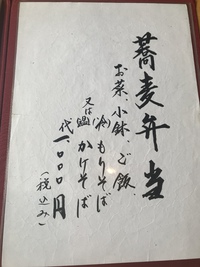 蕎麦弁当
お菜、小鉢、ご飯、
(冷)もりそば
又は(温)かけそば
代一、〇〇〇円
(税込み)